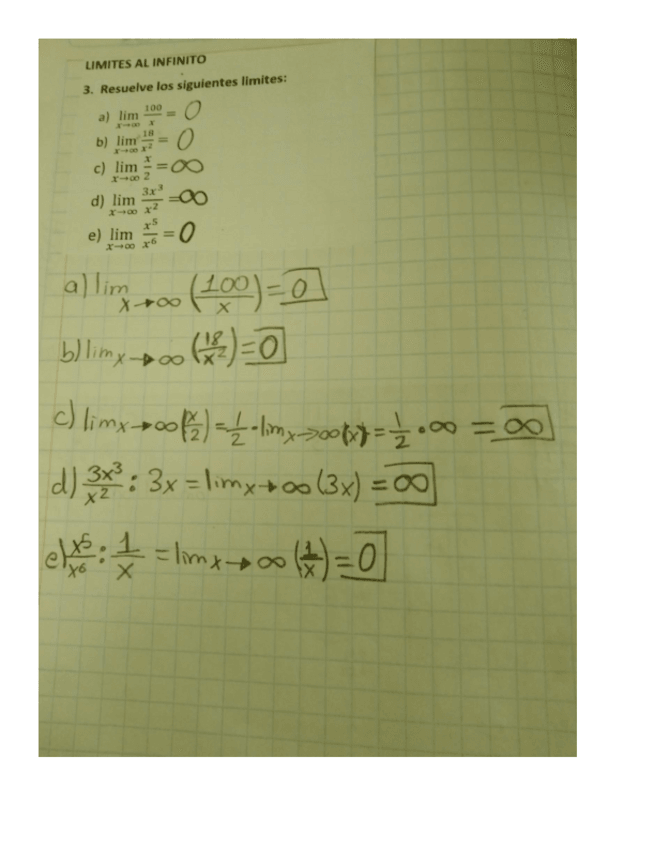 LIMITES AL INFINITO
3. Resuelve los siguientes limites:
a) lim x→∞ 100/x = 0
b) lim x→∞ 18/x² = 0
c) lim x→∞ x/2 = ∞
d) lim x→∞ 3x³/x² = ∞
e) lim x→∞ x⁵/x⁶ = 0
a) lim x→∞ (100/x) = 0
b) lim x→∞ (18/x²) = 0
c) lim x→∞ (x/2) = 1/2 · lim x→∞ (x) = 1/2 · ∞ = ∞
d) 3x³/x² : 3x = lim x→∞ (3x) = ∞
e) x⁵/x⁶ : 1/x = lim x→∞ (1/x) = 0